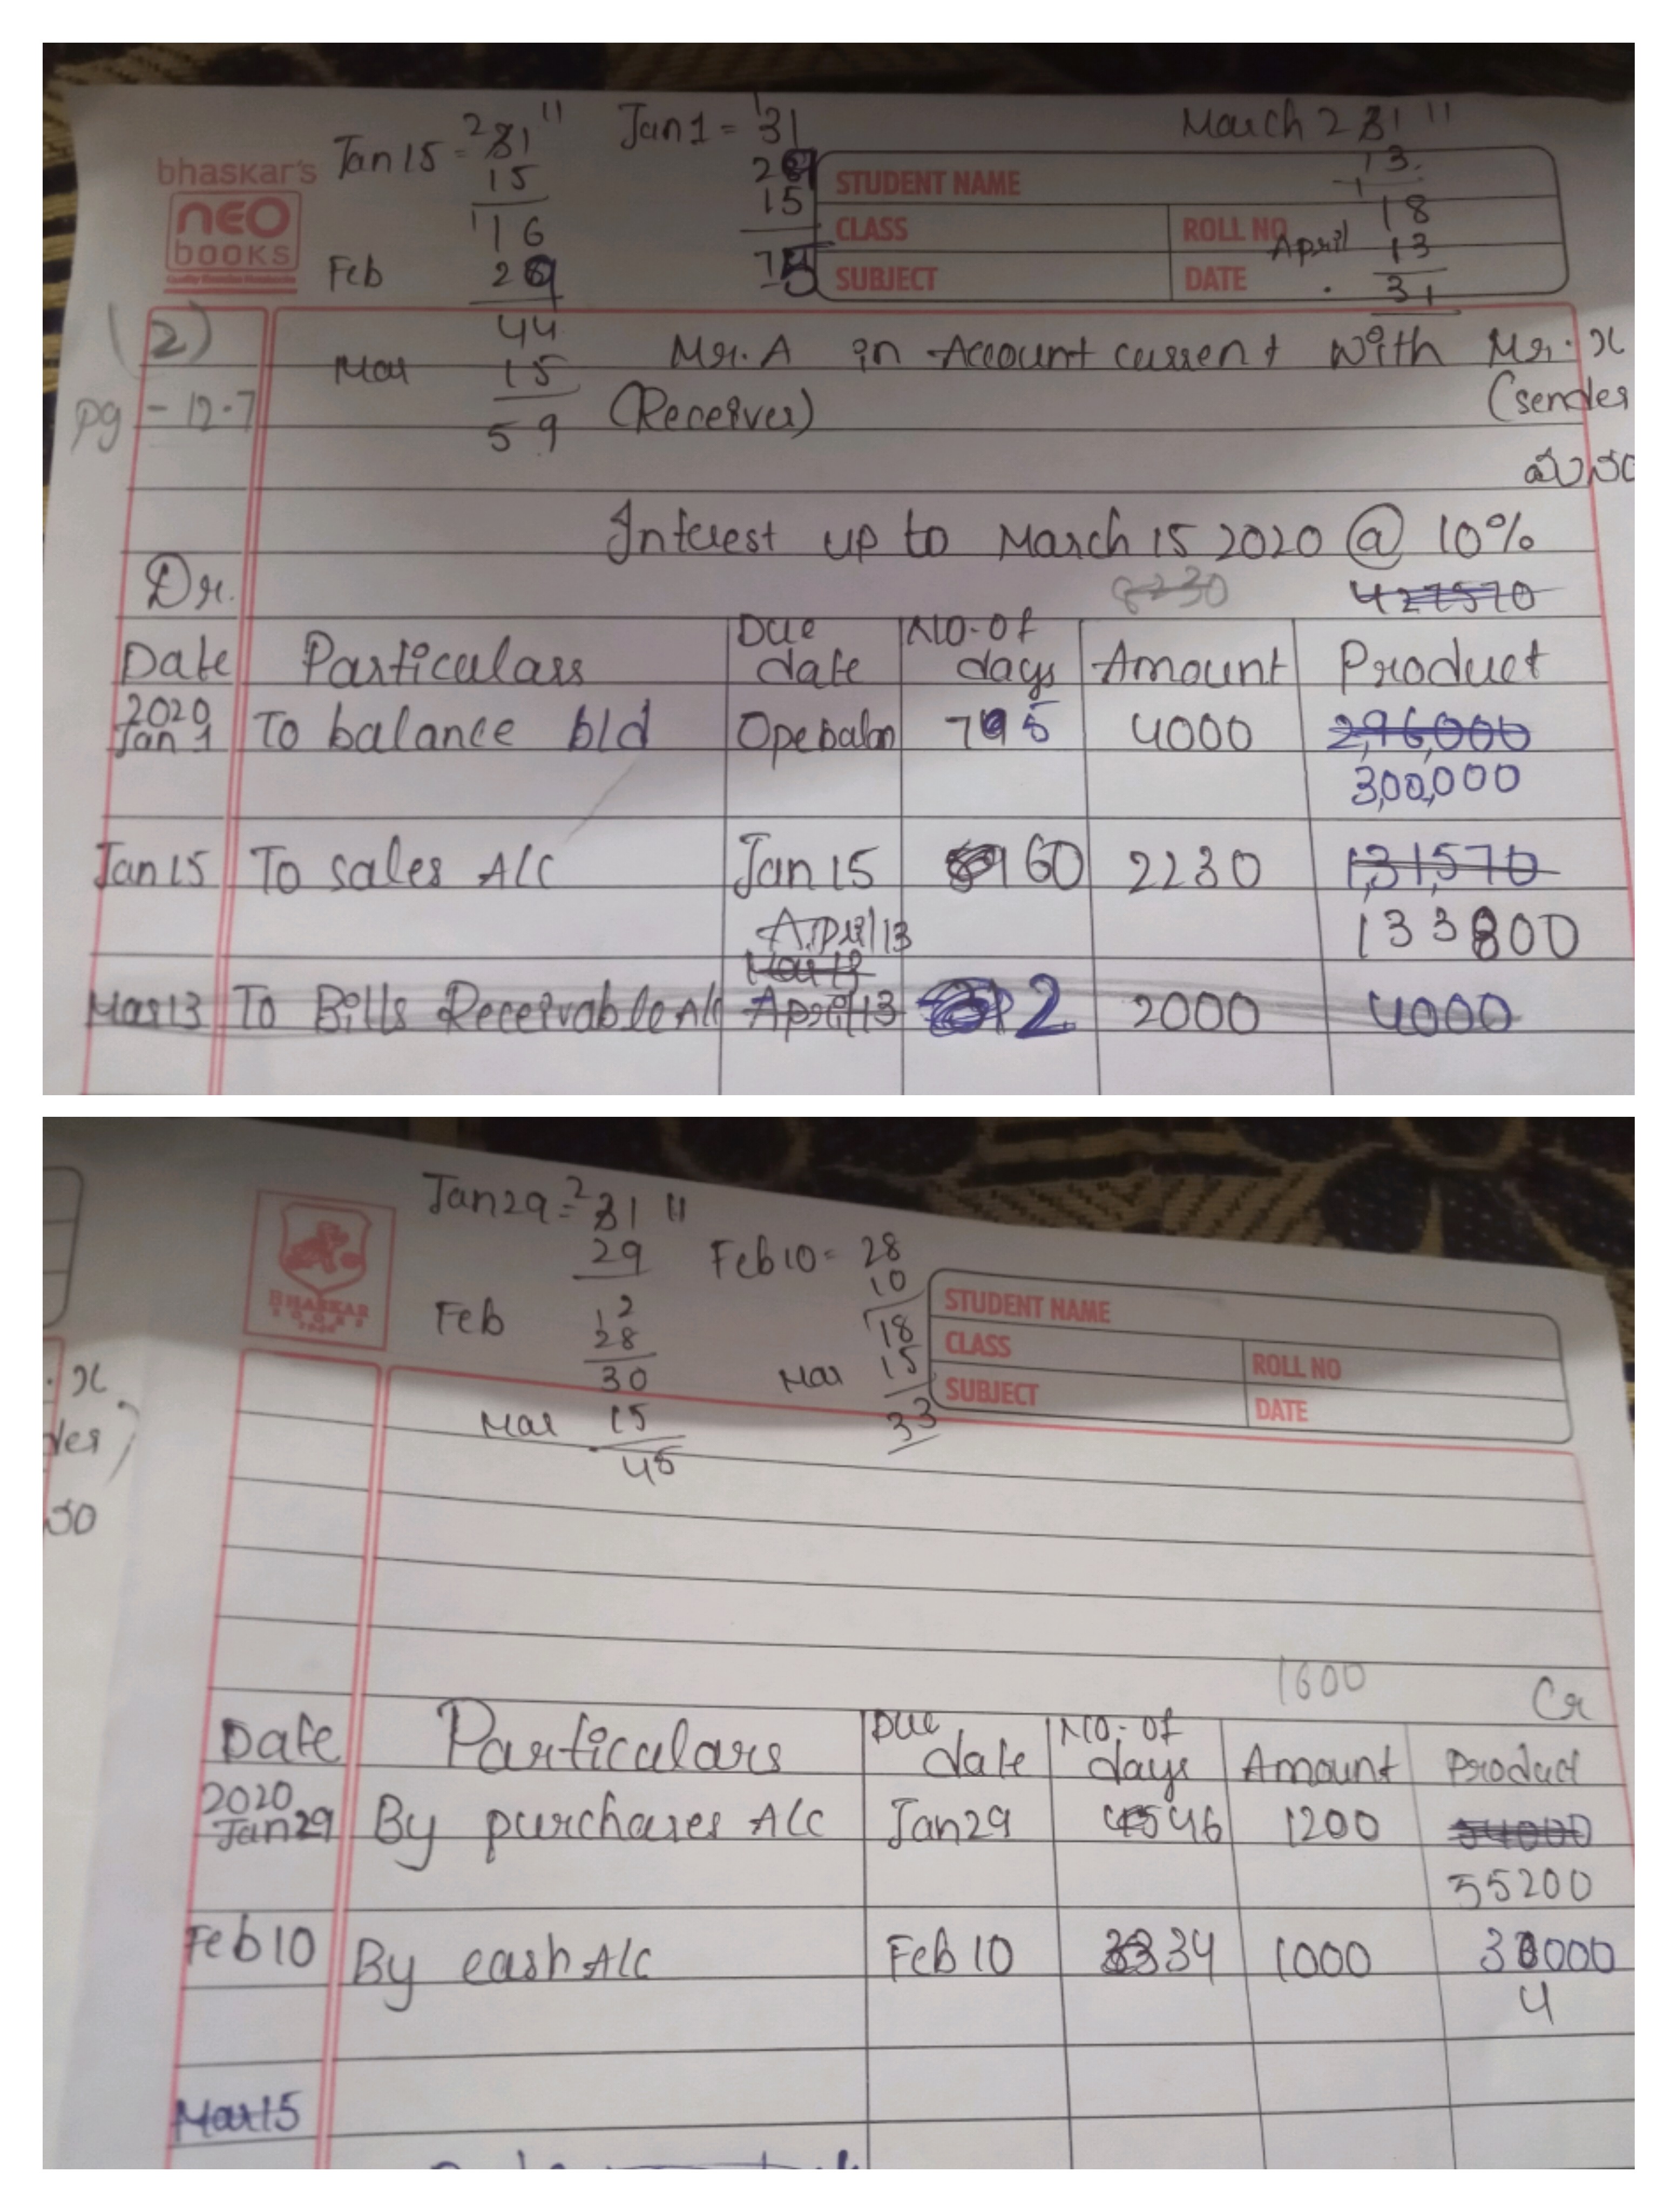 Jan 15 = 31 11 Jan 1 = 31 March 2 31 11
15 29 13
16 15 18
Feb 29 75 April 13
44 31
Mar 15
59
bhaskar's
NEO
books
STUDENT NAME
CLASS ROLL NO
SUBJECT DATE
(2)
pg - 12.7
Mr. A in Account current with Mr. x
(Receiver) (sender
Interest up to March 15 2020 @ 10%
Dr. 8230 427570
Date Particulars Due date No. of days Amount Product
2020
Jan 1 To balance b/d Opebalan 75 4000 296,000
3,00,000
Jan 15 To sales A/c Jan 15 60 2230 1,31,570
133800
April 13
Mar 13
Mar 13 To Bills Receivable A/c April 13 2 2000 4000
Jan 29 = 2 31 11
29 Feb 10 = 28
10
Feb 12 18
28
30 Mar 15
Mar 15 33
45
BHASKAR
STUDENT NAME
CLASS ROLL NO
SUBJECT DATE
x
der)
1600 Cr
Date Particulars Due date No. of days Amount Product
2020
Jan 29 By purchases A/c Jan 29 45 46 1200 54000
55200
Feb 10 By cash A/c Feb 10 33 34 1000 33000
4
Mar 15